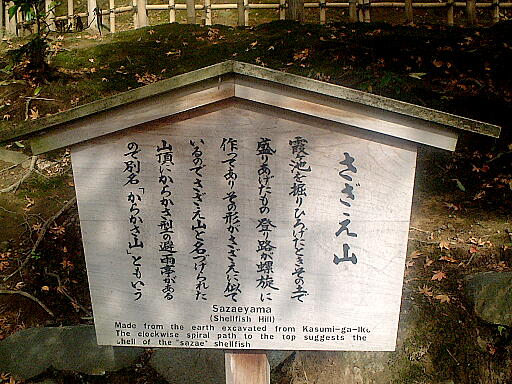 さざえ山
霞ヶ池を掘りひろげたときその土で
盛りあげたもの 登り路が螺旋に
作ってありその形がさざえに似て
いるのでさざえ山と名づけられた
山頂にからかさ型の避雨亭がある
ので別名「からかさ山」ともいう
Sazaeyama
(Shellfish Hill)
Made from the earth excavated from Kasumi-ga-Ike
The clockwise spiral path to the top suggests the
shell of the "sazae" shellfish